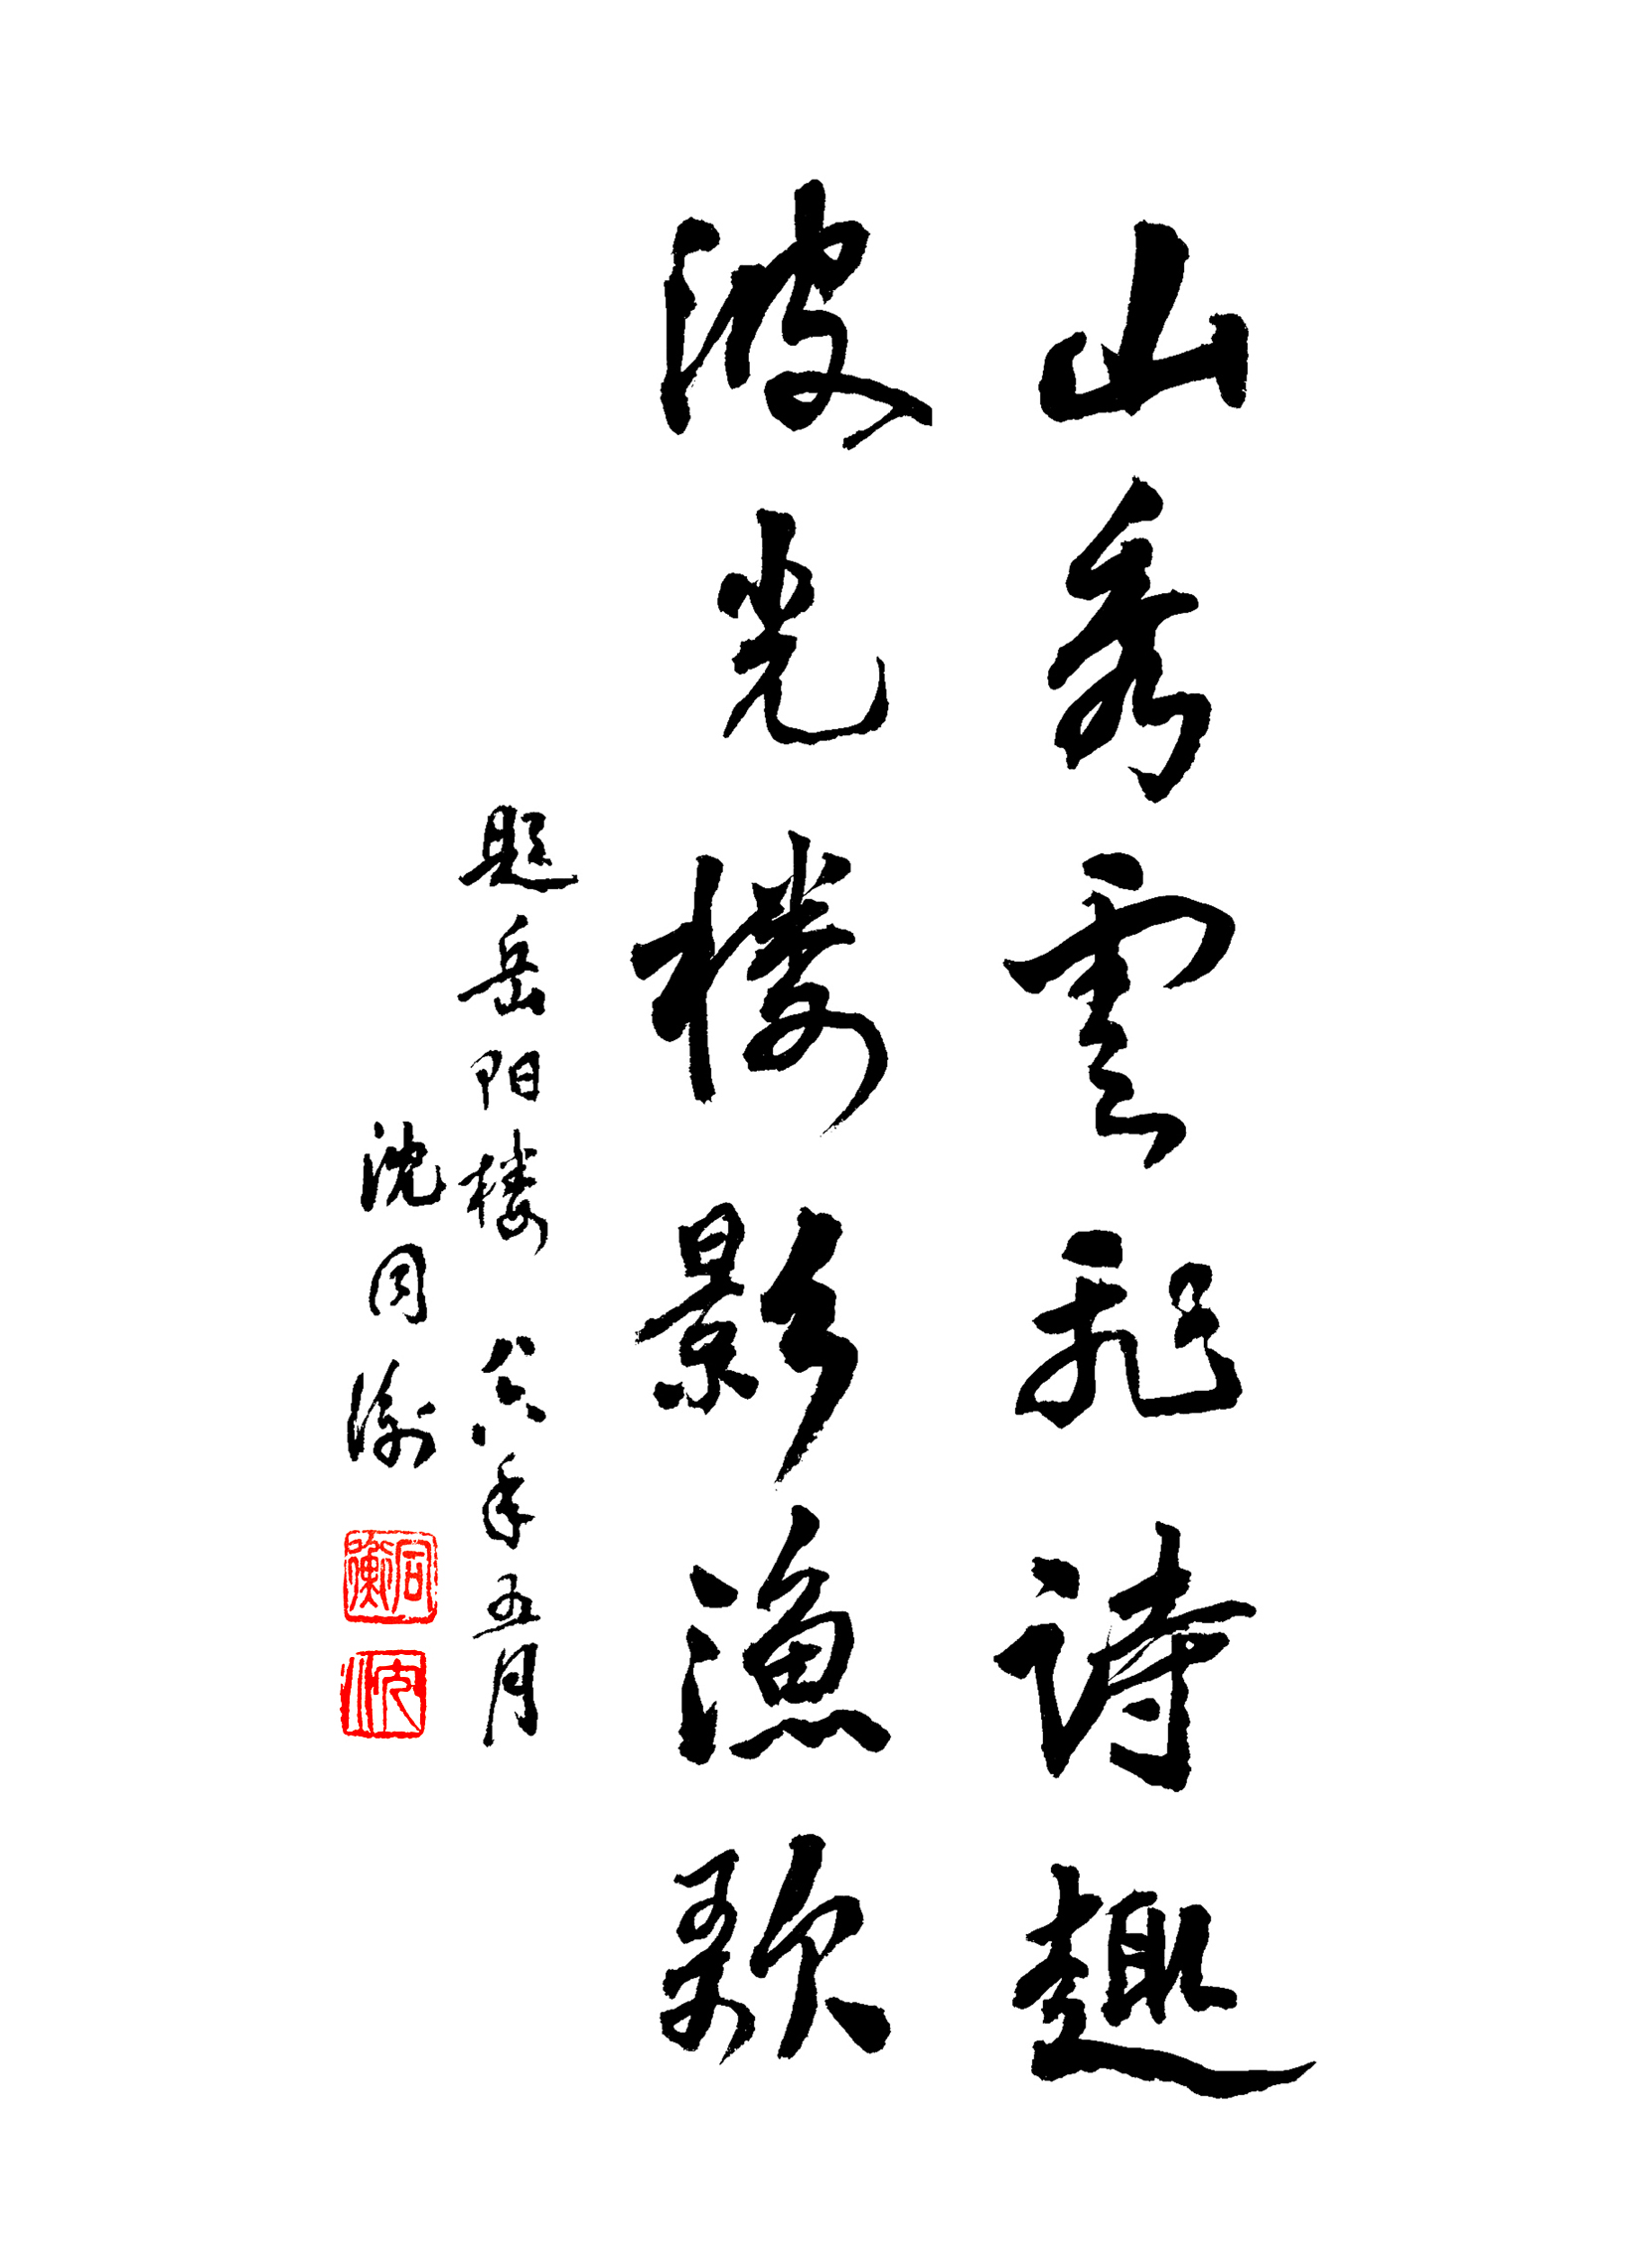 山秀雲飛诗趣
波光楼影渔歌
题岳阳楼 八六年五月
沈同衡
同衡
沈